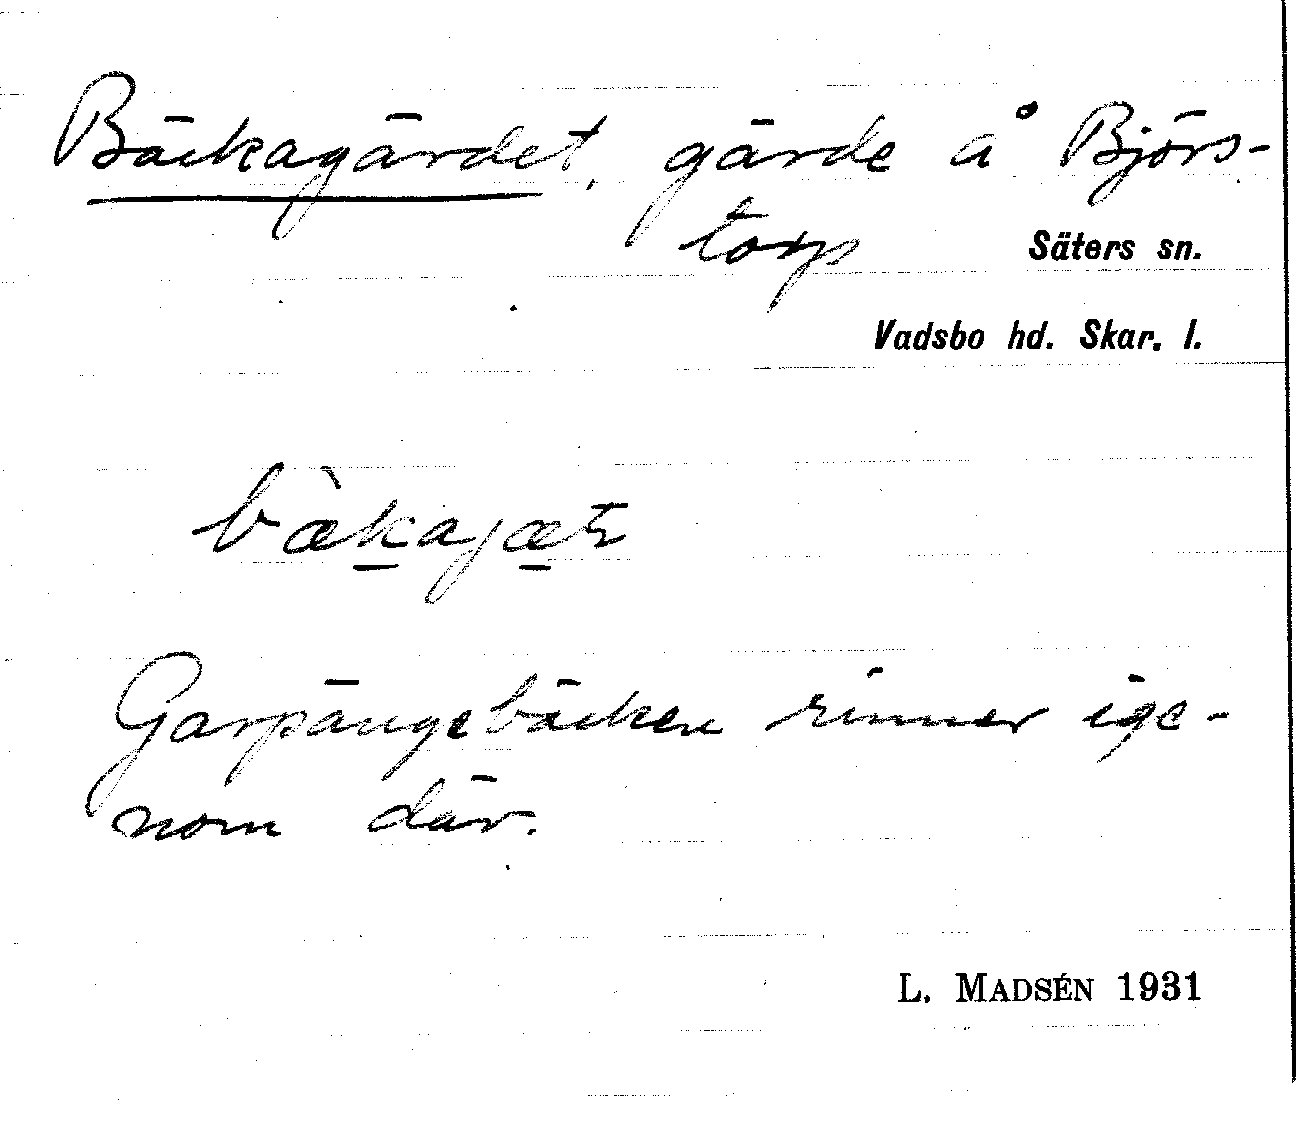 Bäckagärdet, gärde å Björs-
torp Säters sn.
Vadsbo hd. Skar. l.
Garpängebäcken rinner ige-
nom där.
L. MADSÉN 1931